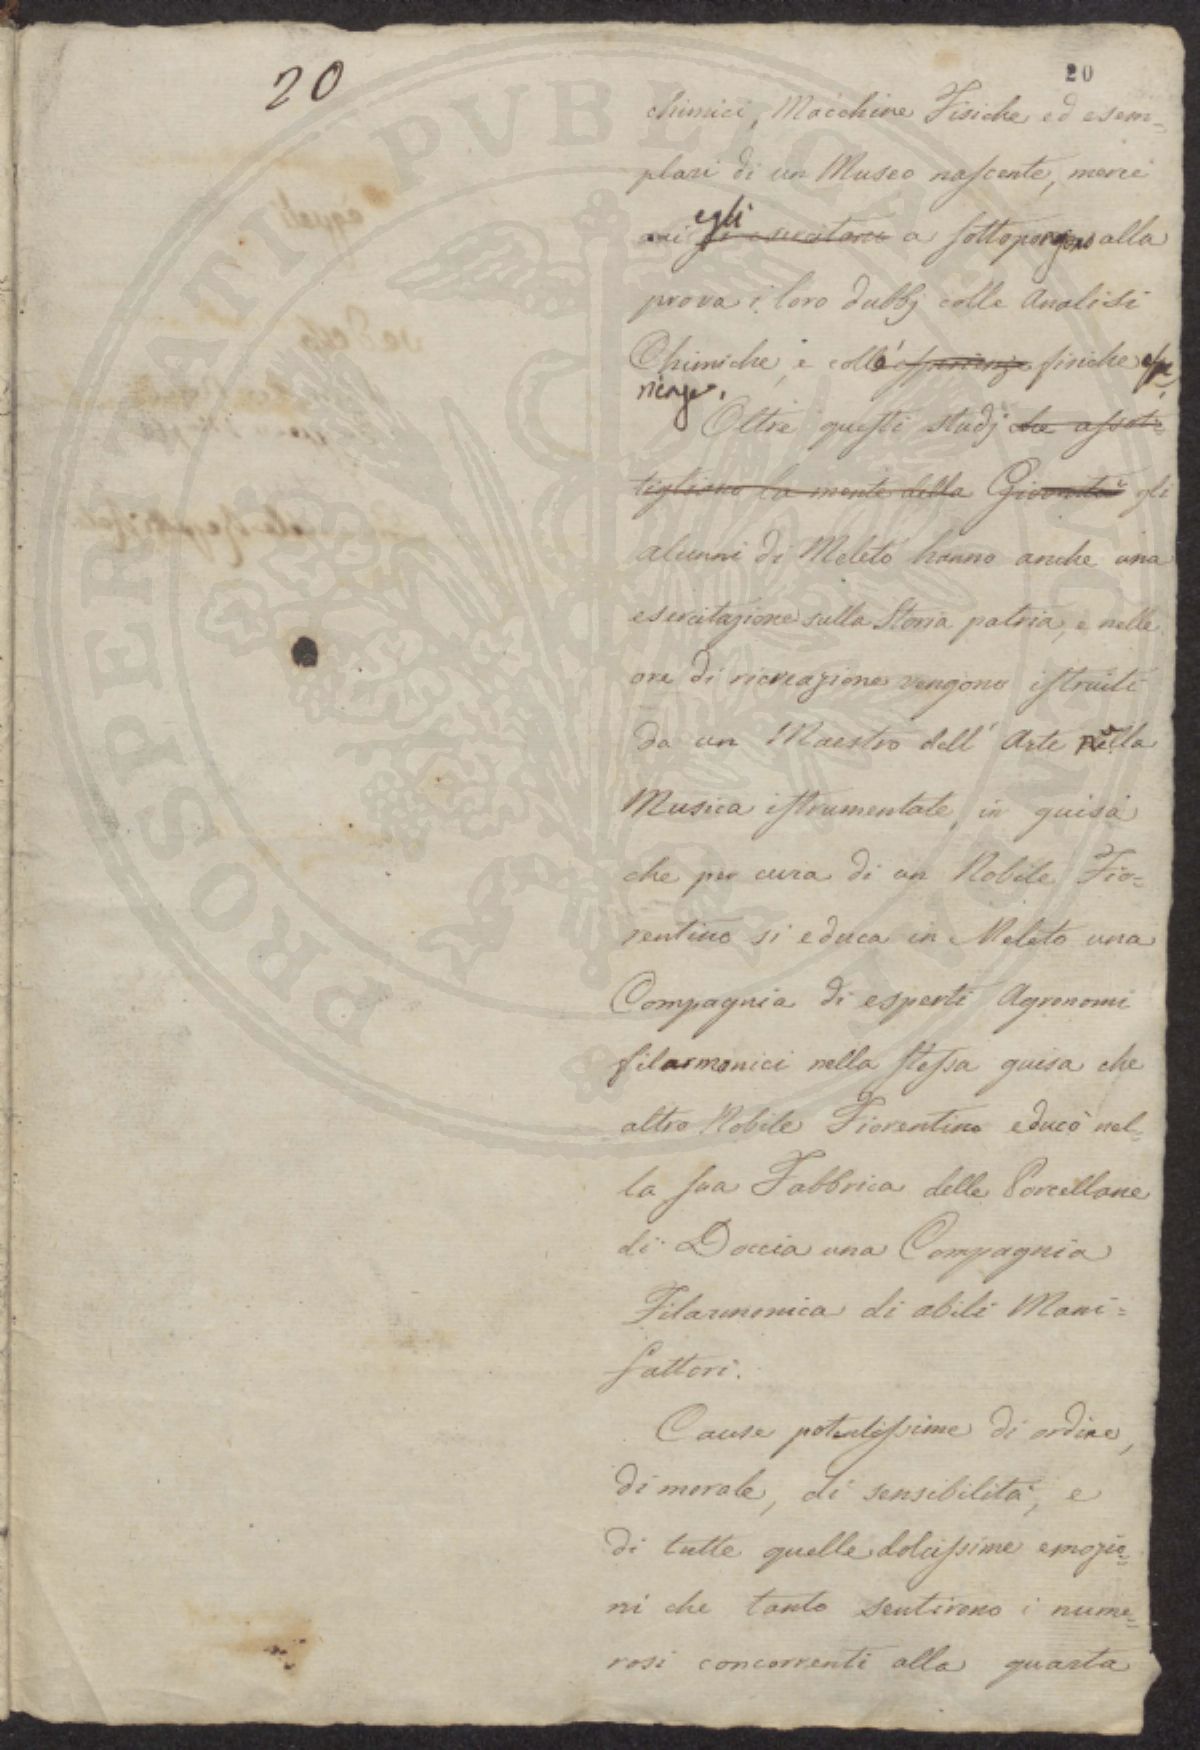 20
20
chimici, Macchine Fisiche ed esem=
plari di un Museo nascente, mercè
cui egli si esercitano a sottopongono alla
prova i loro dubbj colle Analisi
Chimiche, e colle esperienze fisiche espe
rienze.
Oltre questi studj che assot=
tigliano la mente della Gioventù gli
alunni di Meleto hanno anche una
esercitazione sulla Storia patria, e nelle
ore di ricreazione vengono istruiti
da un Maestro dell' Arte nella
Musica istrumentale, in guisa
che per cura di un Nobile Fio=
rentino si educa in Meleto una
Compagnia di esperti Agronomi
filarmonici nella stessa guisa che
altro Nobile Fiorentino educò nel=
la sua Fabbrica delle Porcellane
di Doccia una Compagnia
Filarmonica di abili Mani=
fattori.
Cause potentissime di ordine,
di morale, di sensibilità, e
di tutte quelle dolcissime emozio=
ni che tanto sentirono i nume=
rosi concorrenti alla quarta
PROSPERITATI PUBLICAE